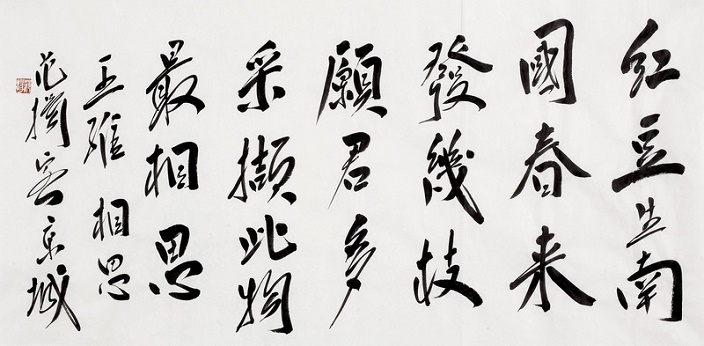 红豆生南
國春来
發幾枝
願君多
采撷此物
最相思
王維相思
范 客京城